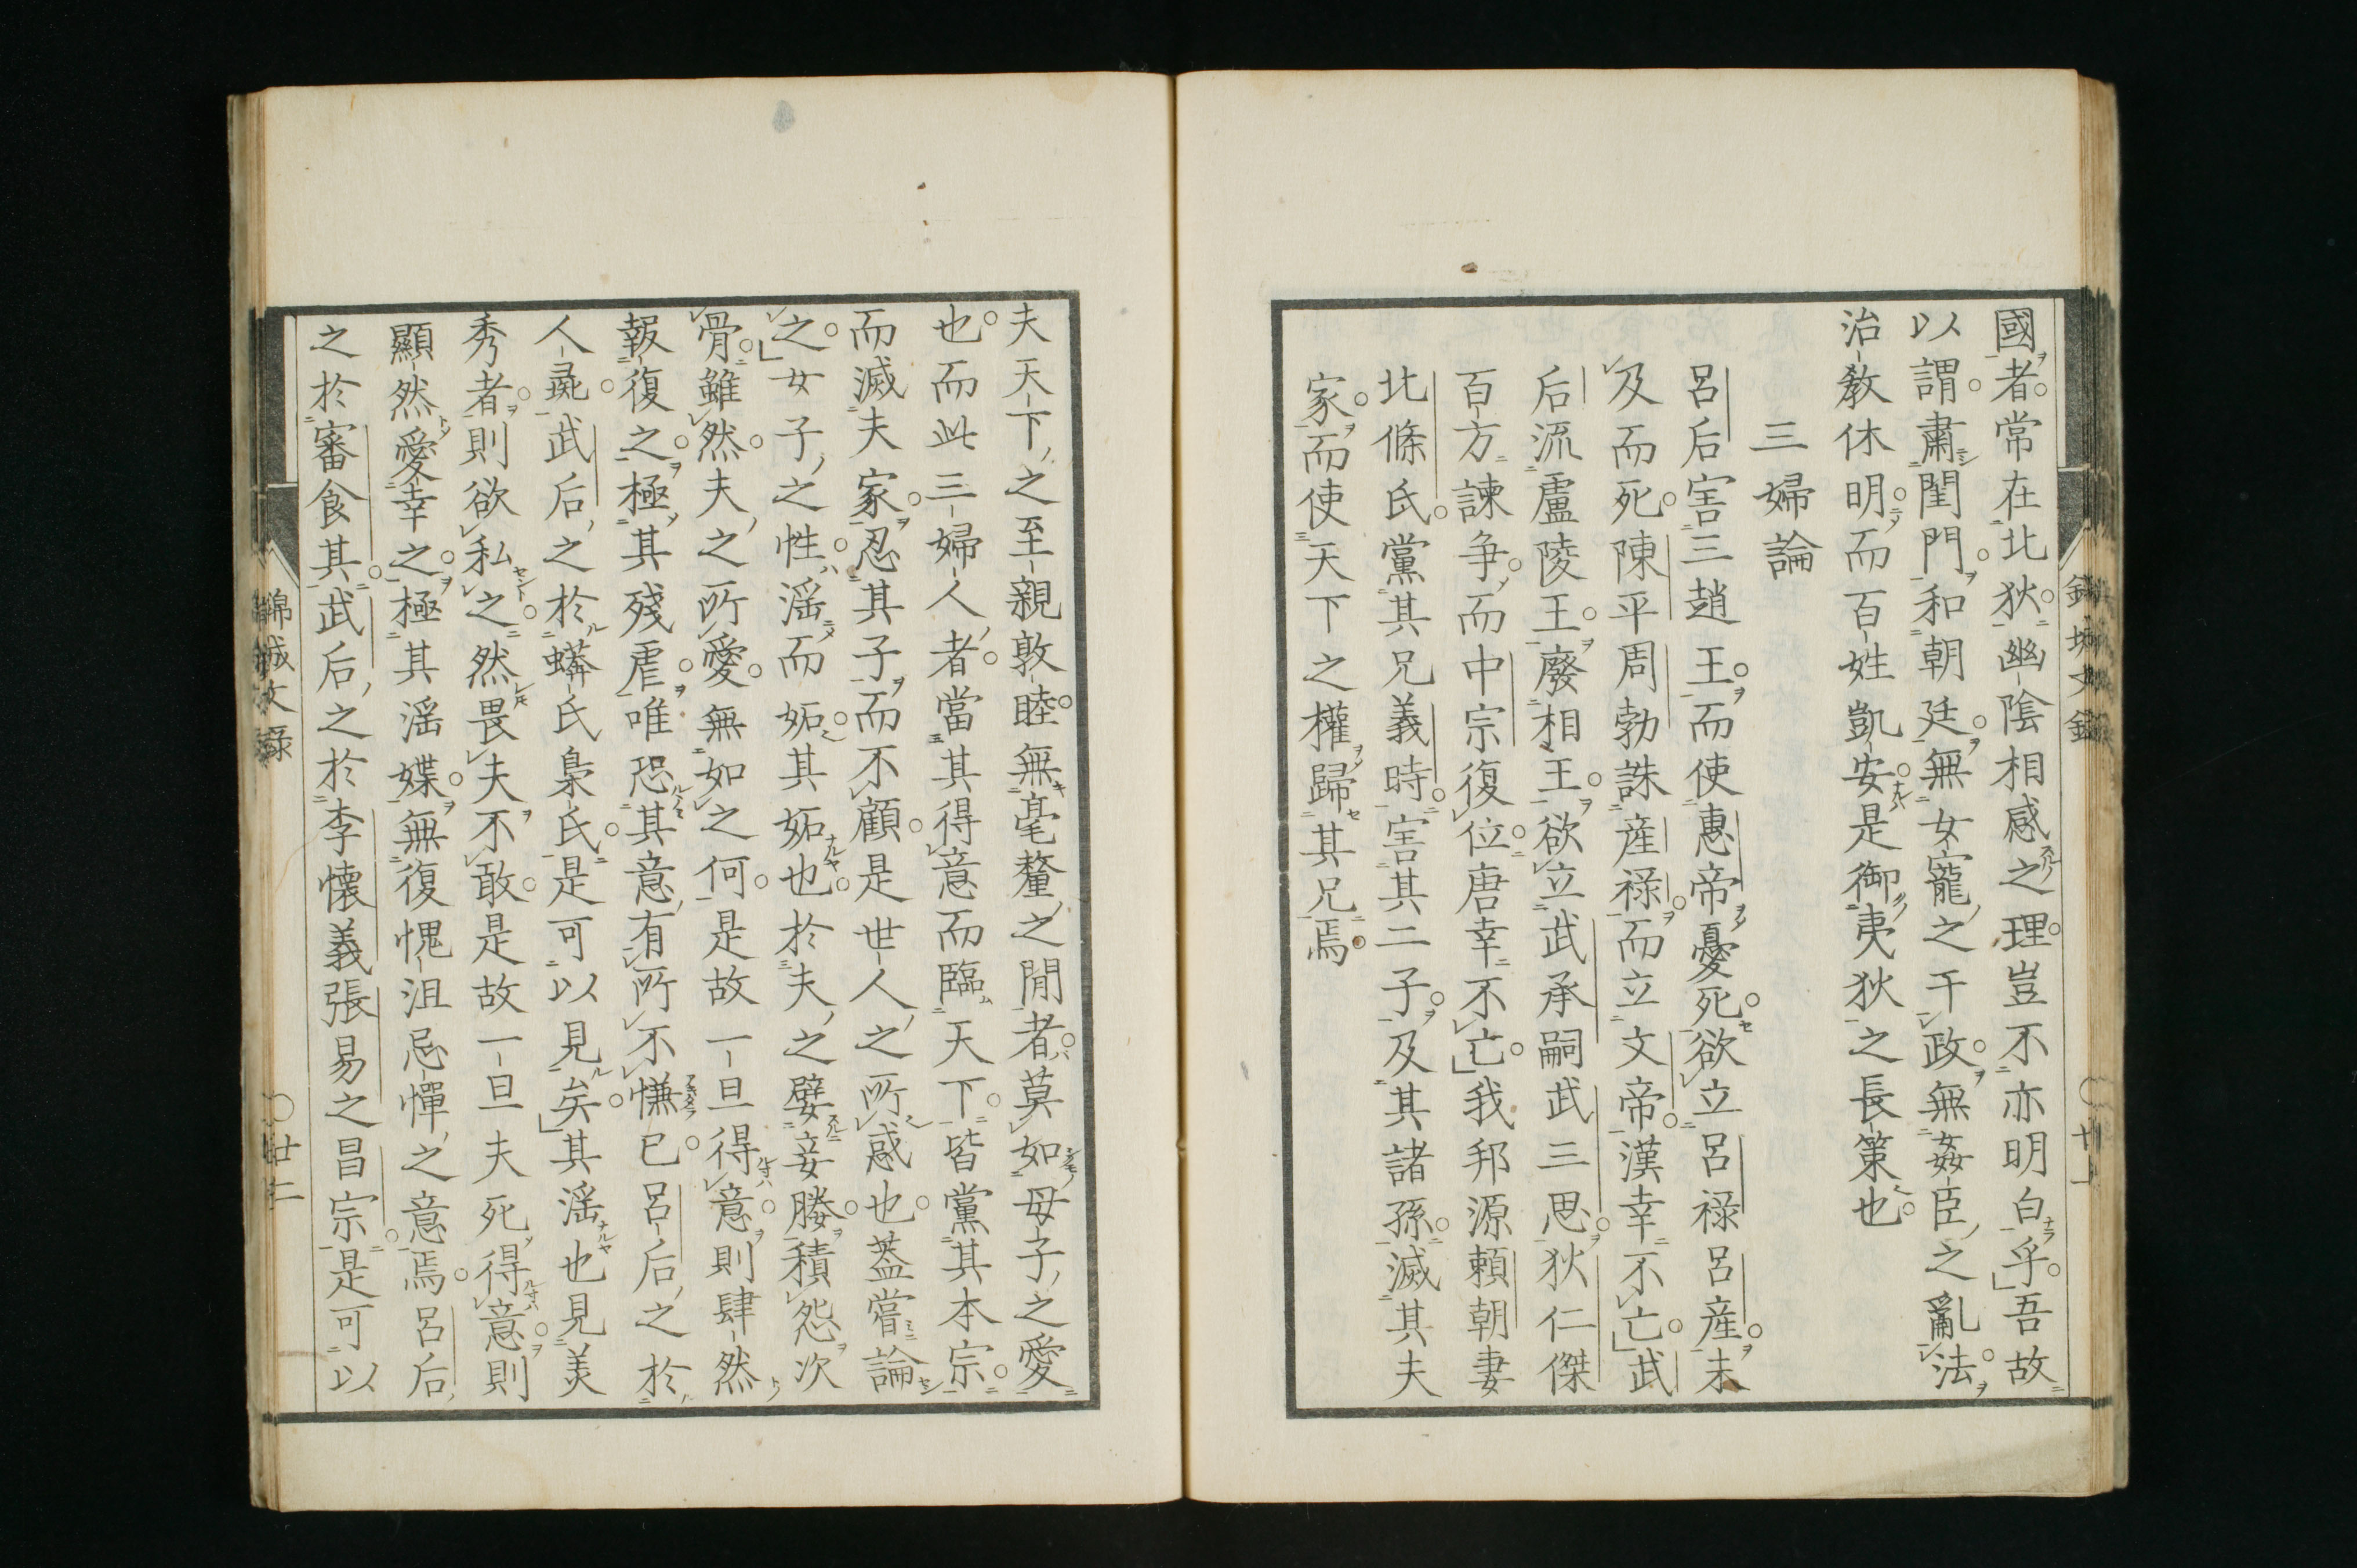 國者常在北狄幽陰相感之理豈不亦明白乎吾故
以謂肅閨門和朝廷無女寵之干政無姦臣之亂法
治教休明而百姓凱安是御夷狄之長策也
三婦論
呂后害三趙王而使惠帝憂死欲立呂祿呂產未
及而死陳平周勃誅產祿而立文帝漢幸不亡武
后流盧陵王廢相王欲立武承嗣武三思狄仁傑
百方諫争而中宗復位唐幸不亡我邦源頼朝妻
北條氏黨其兄義時害其二子及其諸孫滅其夫
家而使天下之權歸其兄焉
夫天下之至親敦睦無毫釐之閒者莫如母子之愛
也而此三婦人者當其得意而臨天下皆黨其本宗
而滅夫家忍其子而不顧是世人之所惑也蓋嘗論
之女子之性淫而妬其妬也於夫之嬖妾媵積怨次
骨雖然夫之所愛無如之何是故一旦得意則肆然
報復之極其殘虐唯恐其意有所不慊已呂后之於
人彘武后之於蟒氏梟氏是可以見矣其淫也見美
秀者則欲私之然畏夫不敢是故一旦夫死得意則
顯然愛幸之極其淫媟無復愧沮忌憚之意焉呂后
之於審食其武后之於李懷義張易之昌宗是可以
錦城文錄
〇廿二